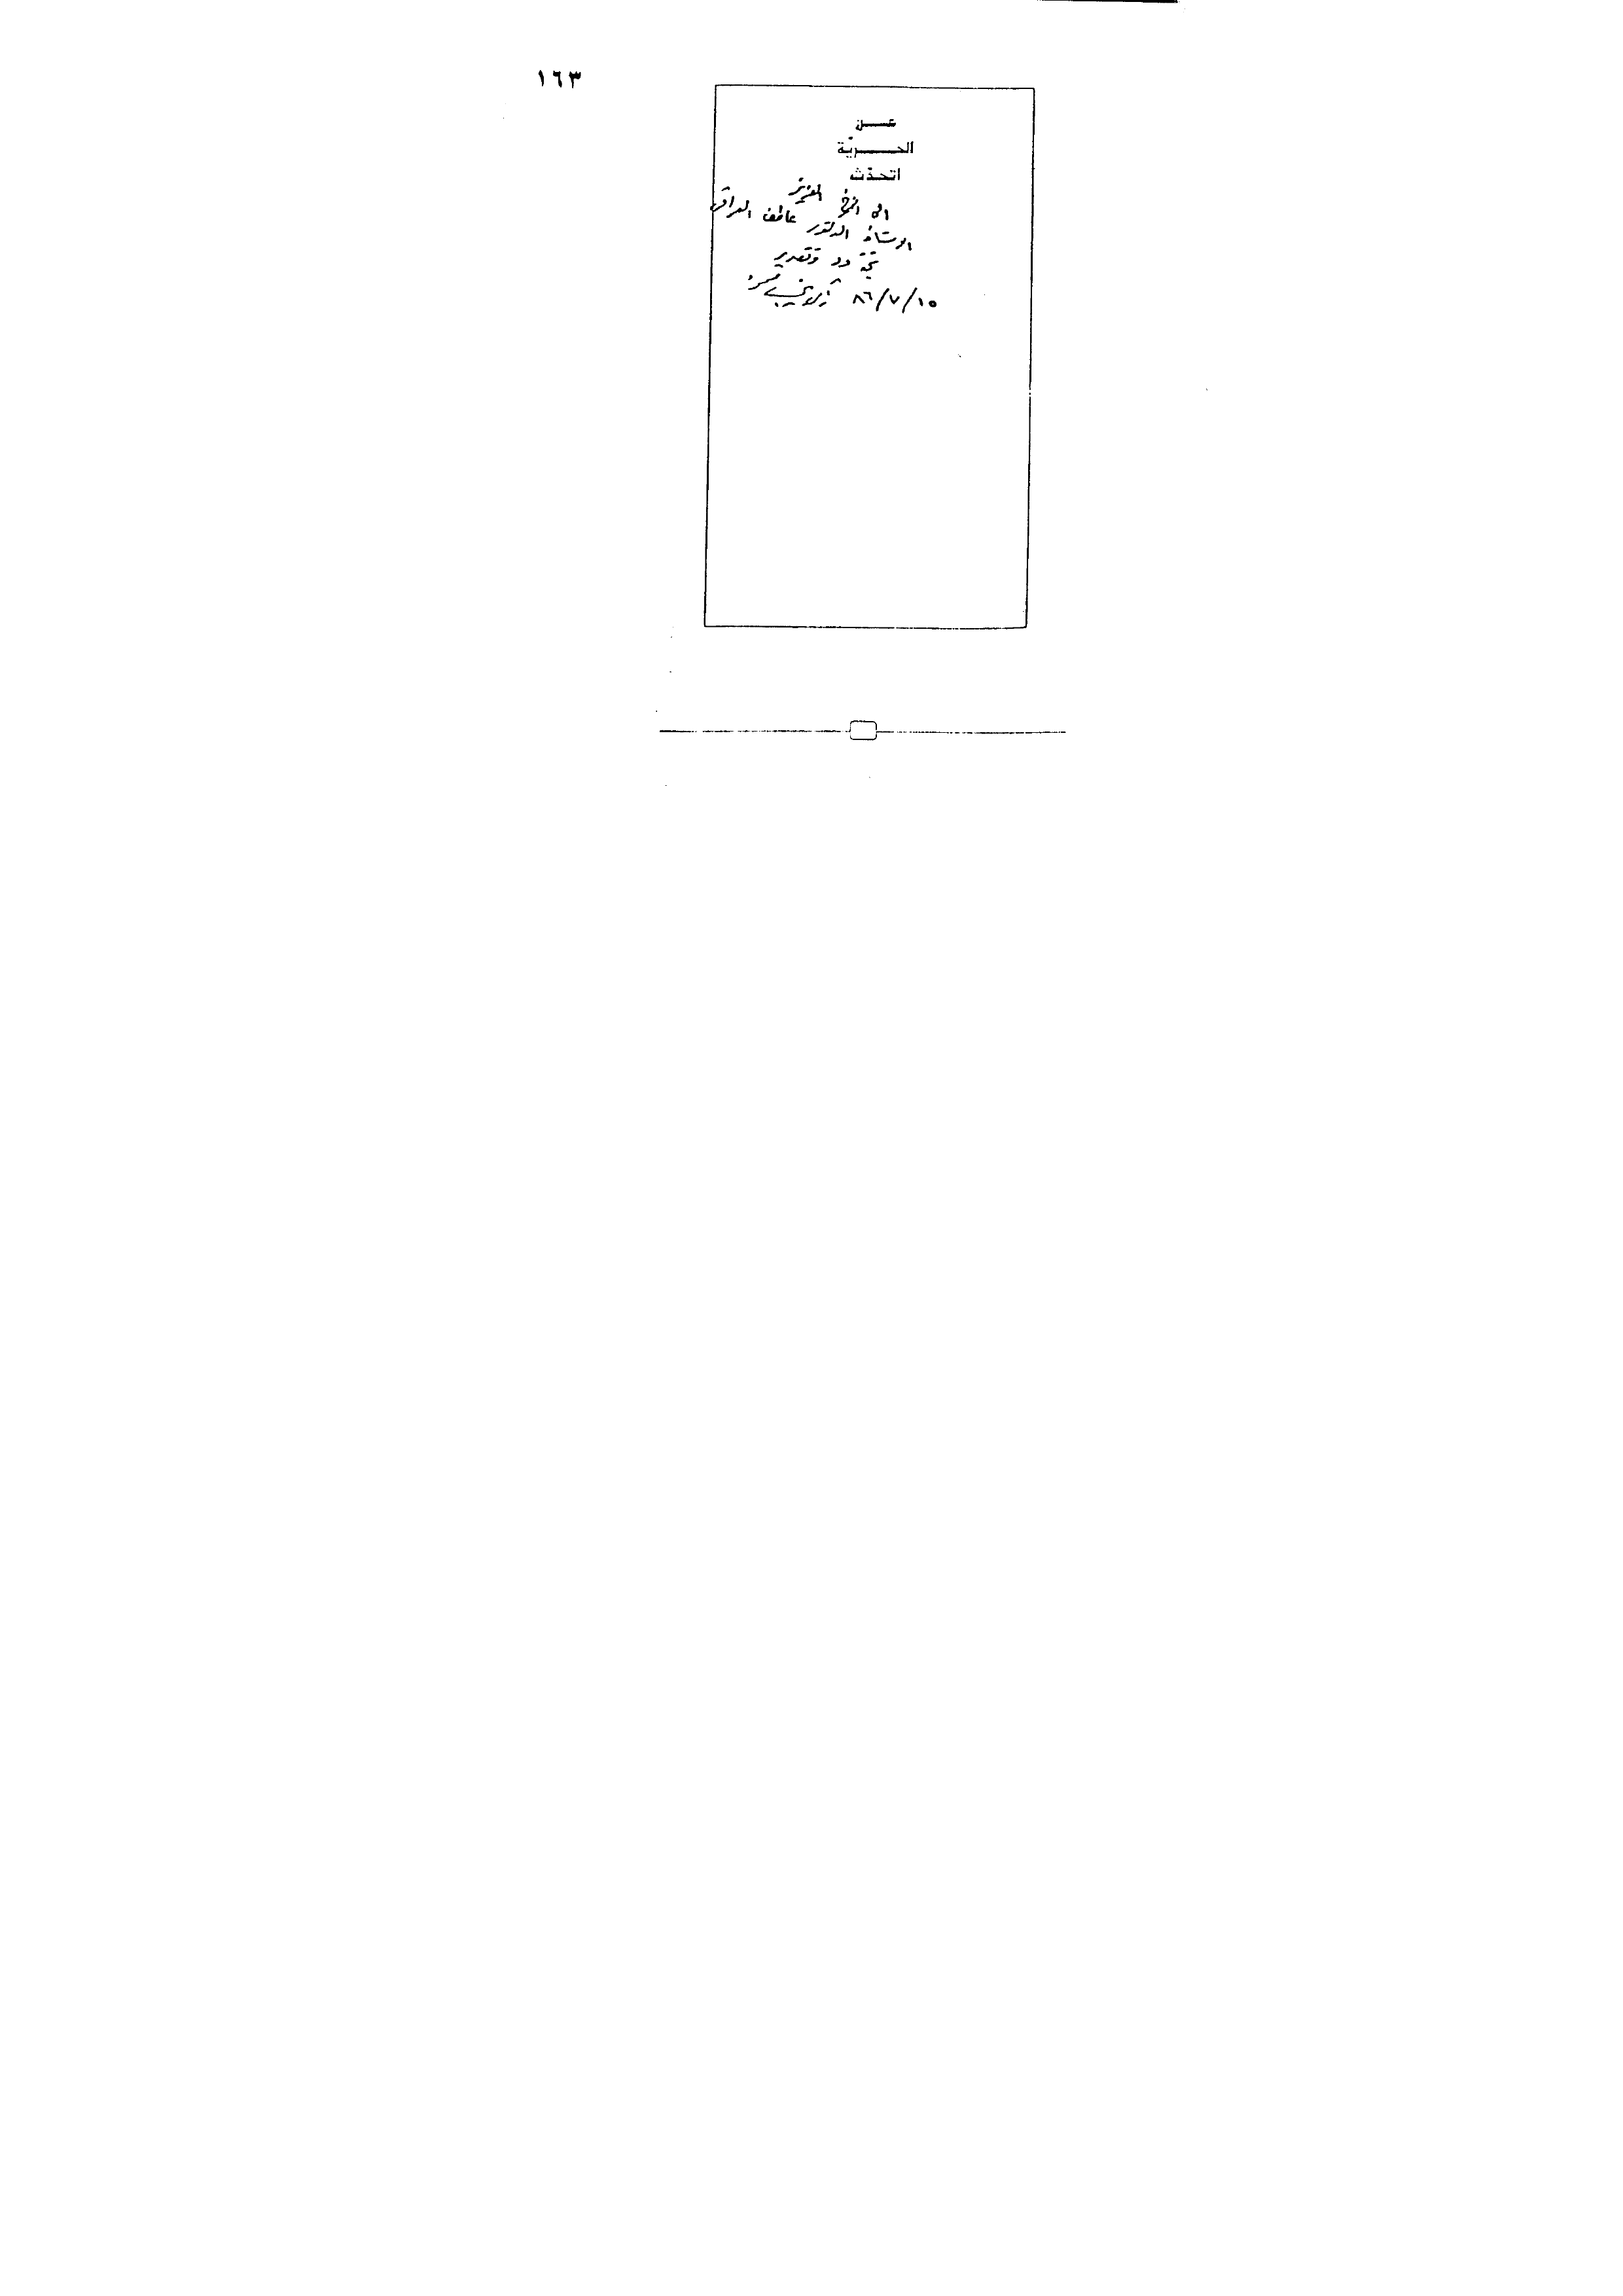 ١٦٣
عـــن
الحـــريّة
اتحدّث
الى الأخ العزيز
الاستاذ الدكتور عاطف العراقي
تحية ود وتقدير
١٥/٧/٨٦ زكي نجيب محمود